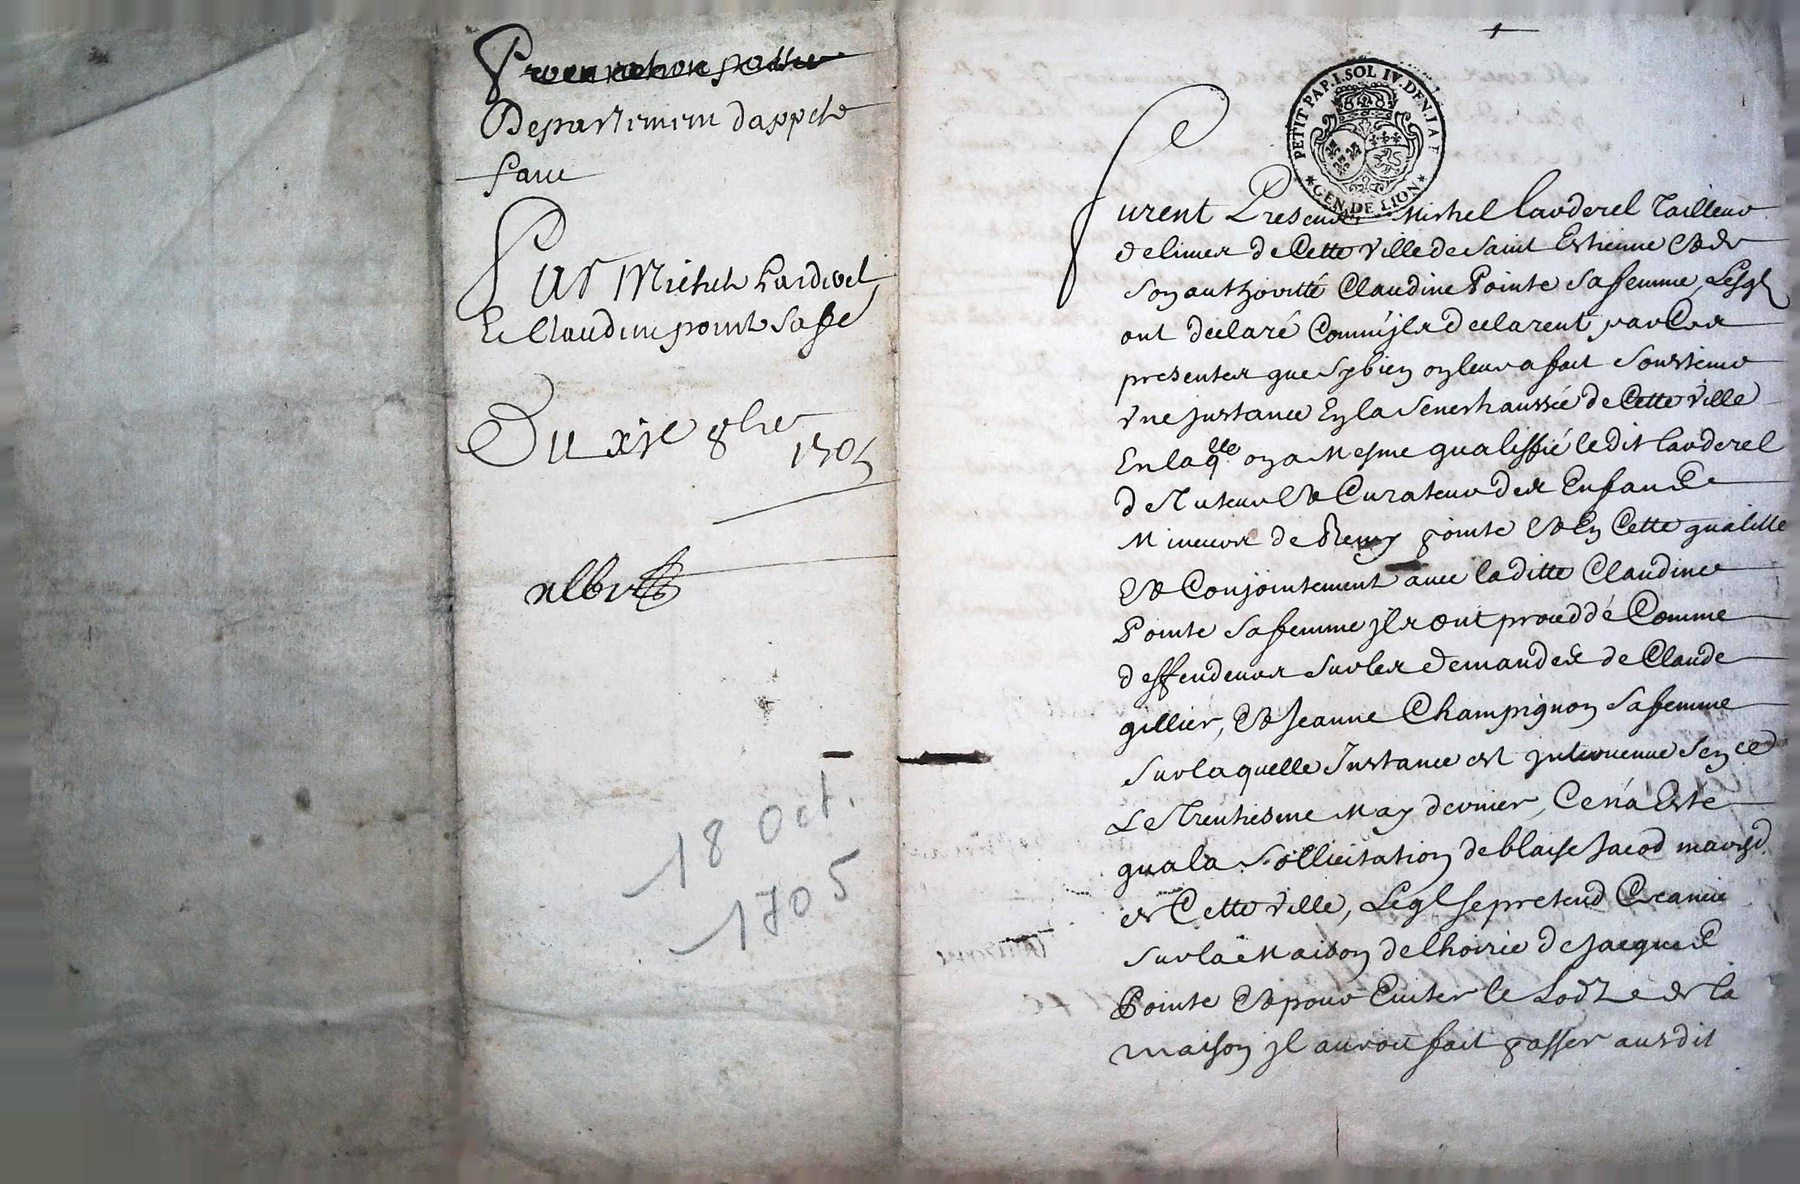 Procuration passée
Departement dappel
Par Michel Larderel
Et Claudine pointe Saffe
Du xixe 8bre
1705
18 Oct.
1705
PETIT PAP. I. SOL IV. DEN. LA F
GEN. DE LION
Furent Presens Michel Larderel Tailleur
de limes de Cette Ville de Saint Estienne Et de
Son authoritté Claudine Pointe Sa femme, Lesqls
ont declaré Comm'jls declarent par Ces
presentes que Sy bien on leur a fait Soustenir
Vne jnstance En la Seneshaussée de Cette Ville
En laqlle on a Mesme qualiffié ledit Larderel
de Tuteur Et Curateur des Enfans
Mineurs de Remy pointe Et En Cette qualitté
Et Conjointement auec laditte Claudine
Pointe Sa femme jls ont proceddé Comme
deffendeurs Sur les demandes de Claude
gillier, Et Jeanne Champignon Sa femme
Sur laquelle Jnstance est jnteruenue Senced
Le Trentiesme May dernier, Ce n'a Esté
qua la Sollicitation de blaise Jacod marchd
de Cette Ville, Leql Se pretend Creancier
Sur la Maison de lhoirie de Jacques
Pointe Et pour Euiter le Lodz é de la
maison jl auroit fait passer ausdit